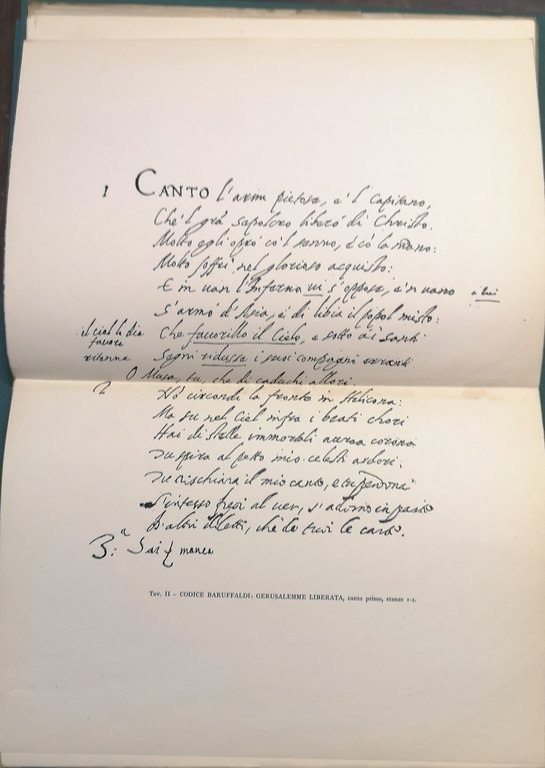 1 CANTO l'armi pietose, e 'l Capitano,
Che 'l grã sepolcro liberò di Christo.
Molto egli oprò co 'l senno, e cõ la mano:
Molto soffrì nel glorioso acquisto:
E in van l'Inferno vi s'oppose, e 'n vano a lui
S'armò d'Asia, e di Libia il popol misto:
il ciel li diè favore Che favorillo il Cielo, e sotto ai santi
ritenne Segni ridusse i suoi compagni erranti
2 O Musa, tu, che di caduchi allori
Nõ circondi la fronte in Helicona:
Ma su nel Ciel infra i beati chori
Hai di stelle immortali aurea corona
Tu spira al petto mio celesti ardori:
Tu rischiara il mio canto, e tu perdona
S'intesso fregi al ver, s'adorno in parte
D'altri diletti, che de tuoi le carte.
3:a Sai manca
TAV. II – CODICE BARUFFALDI: GERUSALEMME LIBERATA, canto primo, stanze 1-2.